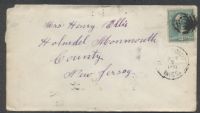 Mrs Henry Ellis
Holmdel Monmouth
County
New Jersey.